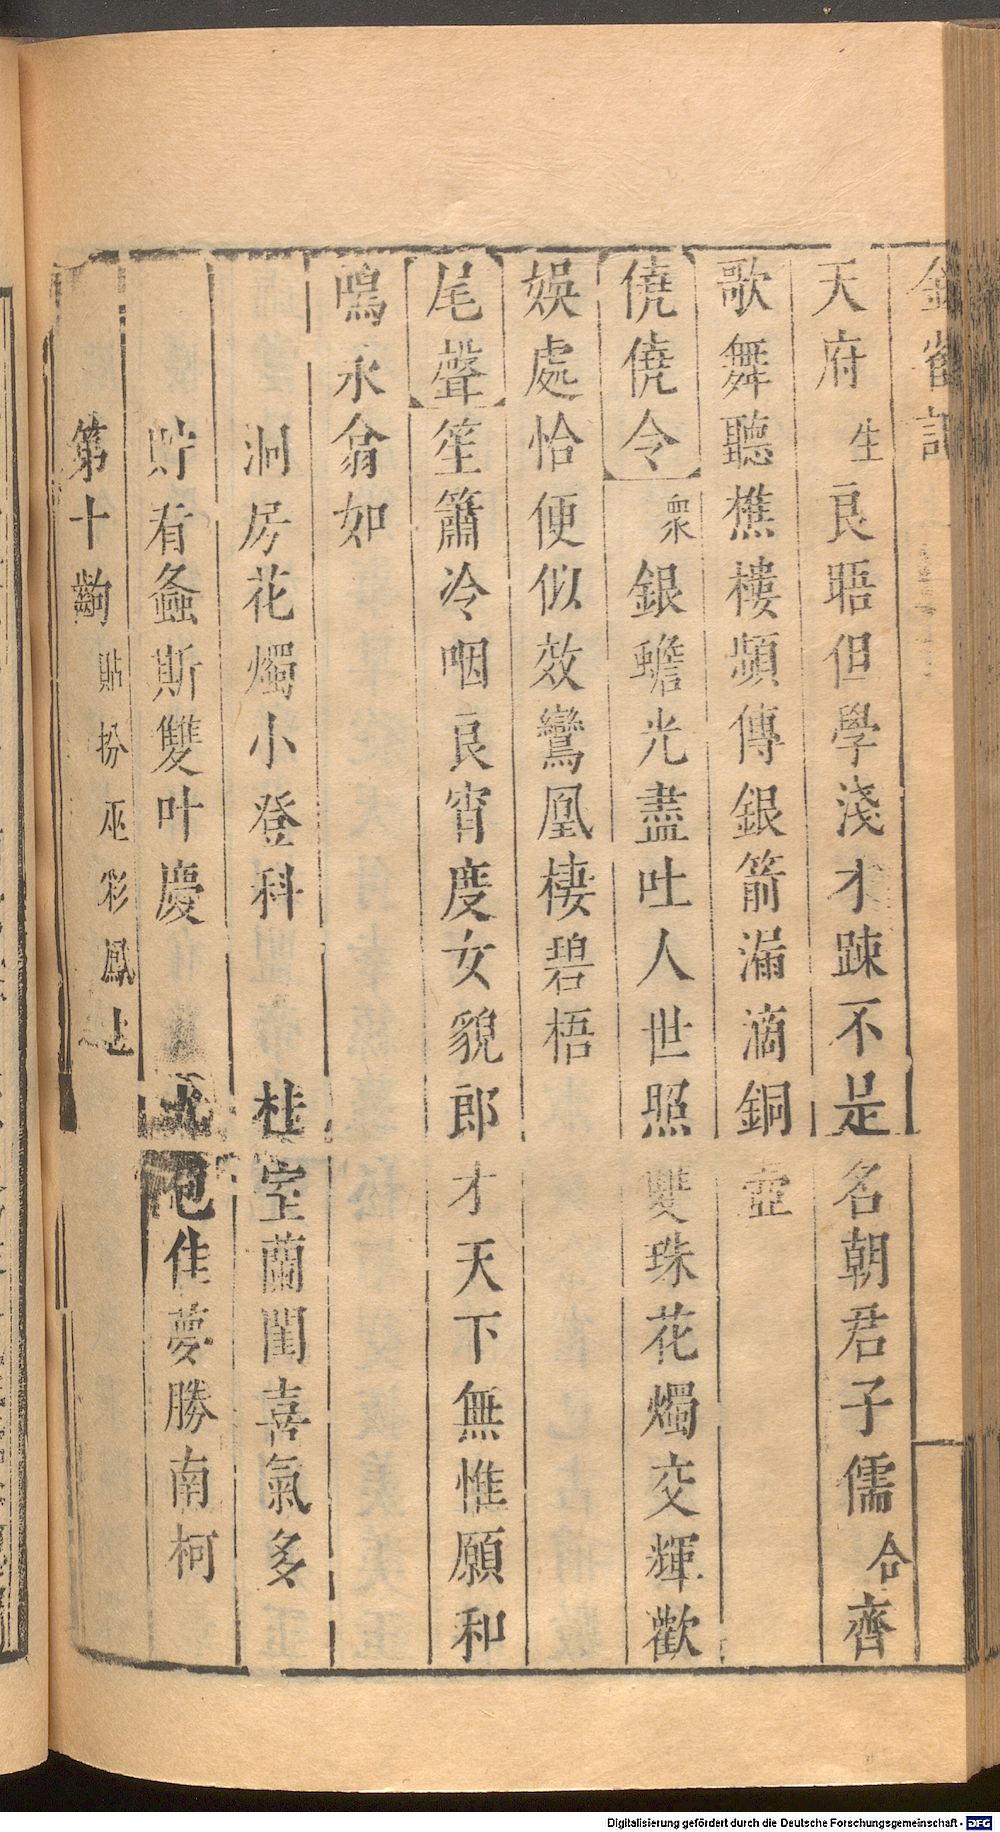 天府生良晤但學淺才踈不是名朝君子儒合齊
歌舞聽樵樓頻傳銀箭漏滴銅壺
僥僥令衆銀蟾光盡吐人世照雙珠花燭交輝歡
娛處恰便似效鸞凰棲碧梧
尾聲笙簫冷咽良宵度女貌郎才天下無惟願和
鳴永翕如
洞房花燭小登科 桂室蘭闺喜氣多
貯看螽斯雙叶慶 佳夢勝南柯
第十齣貼扮巫彩鳳上
Digitalisierung gefördert durch die Deutsche Forschungsgemeinschaft - DFG